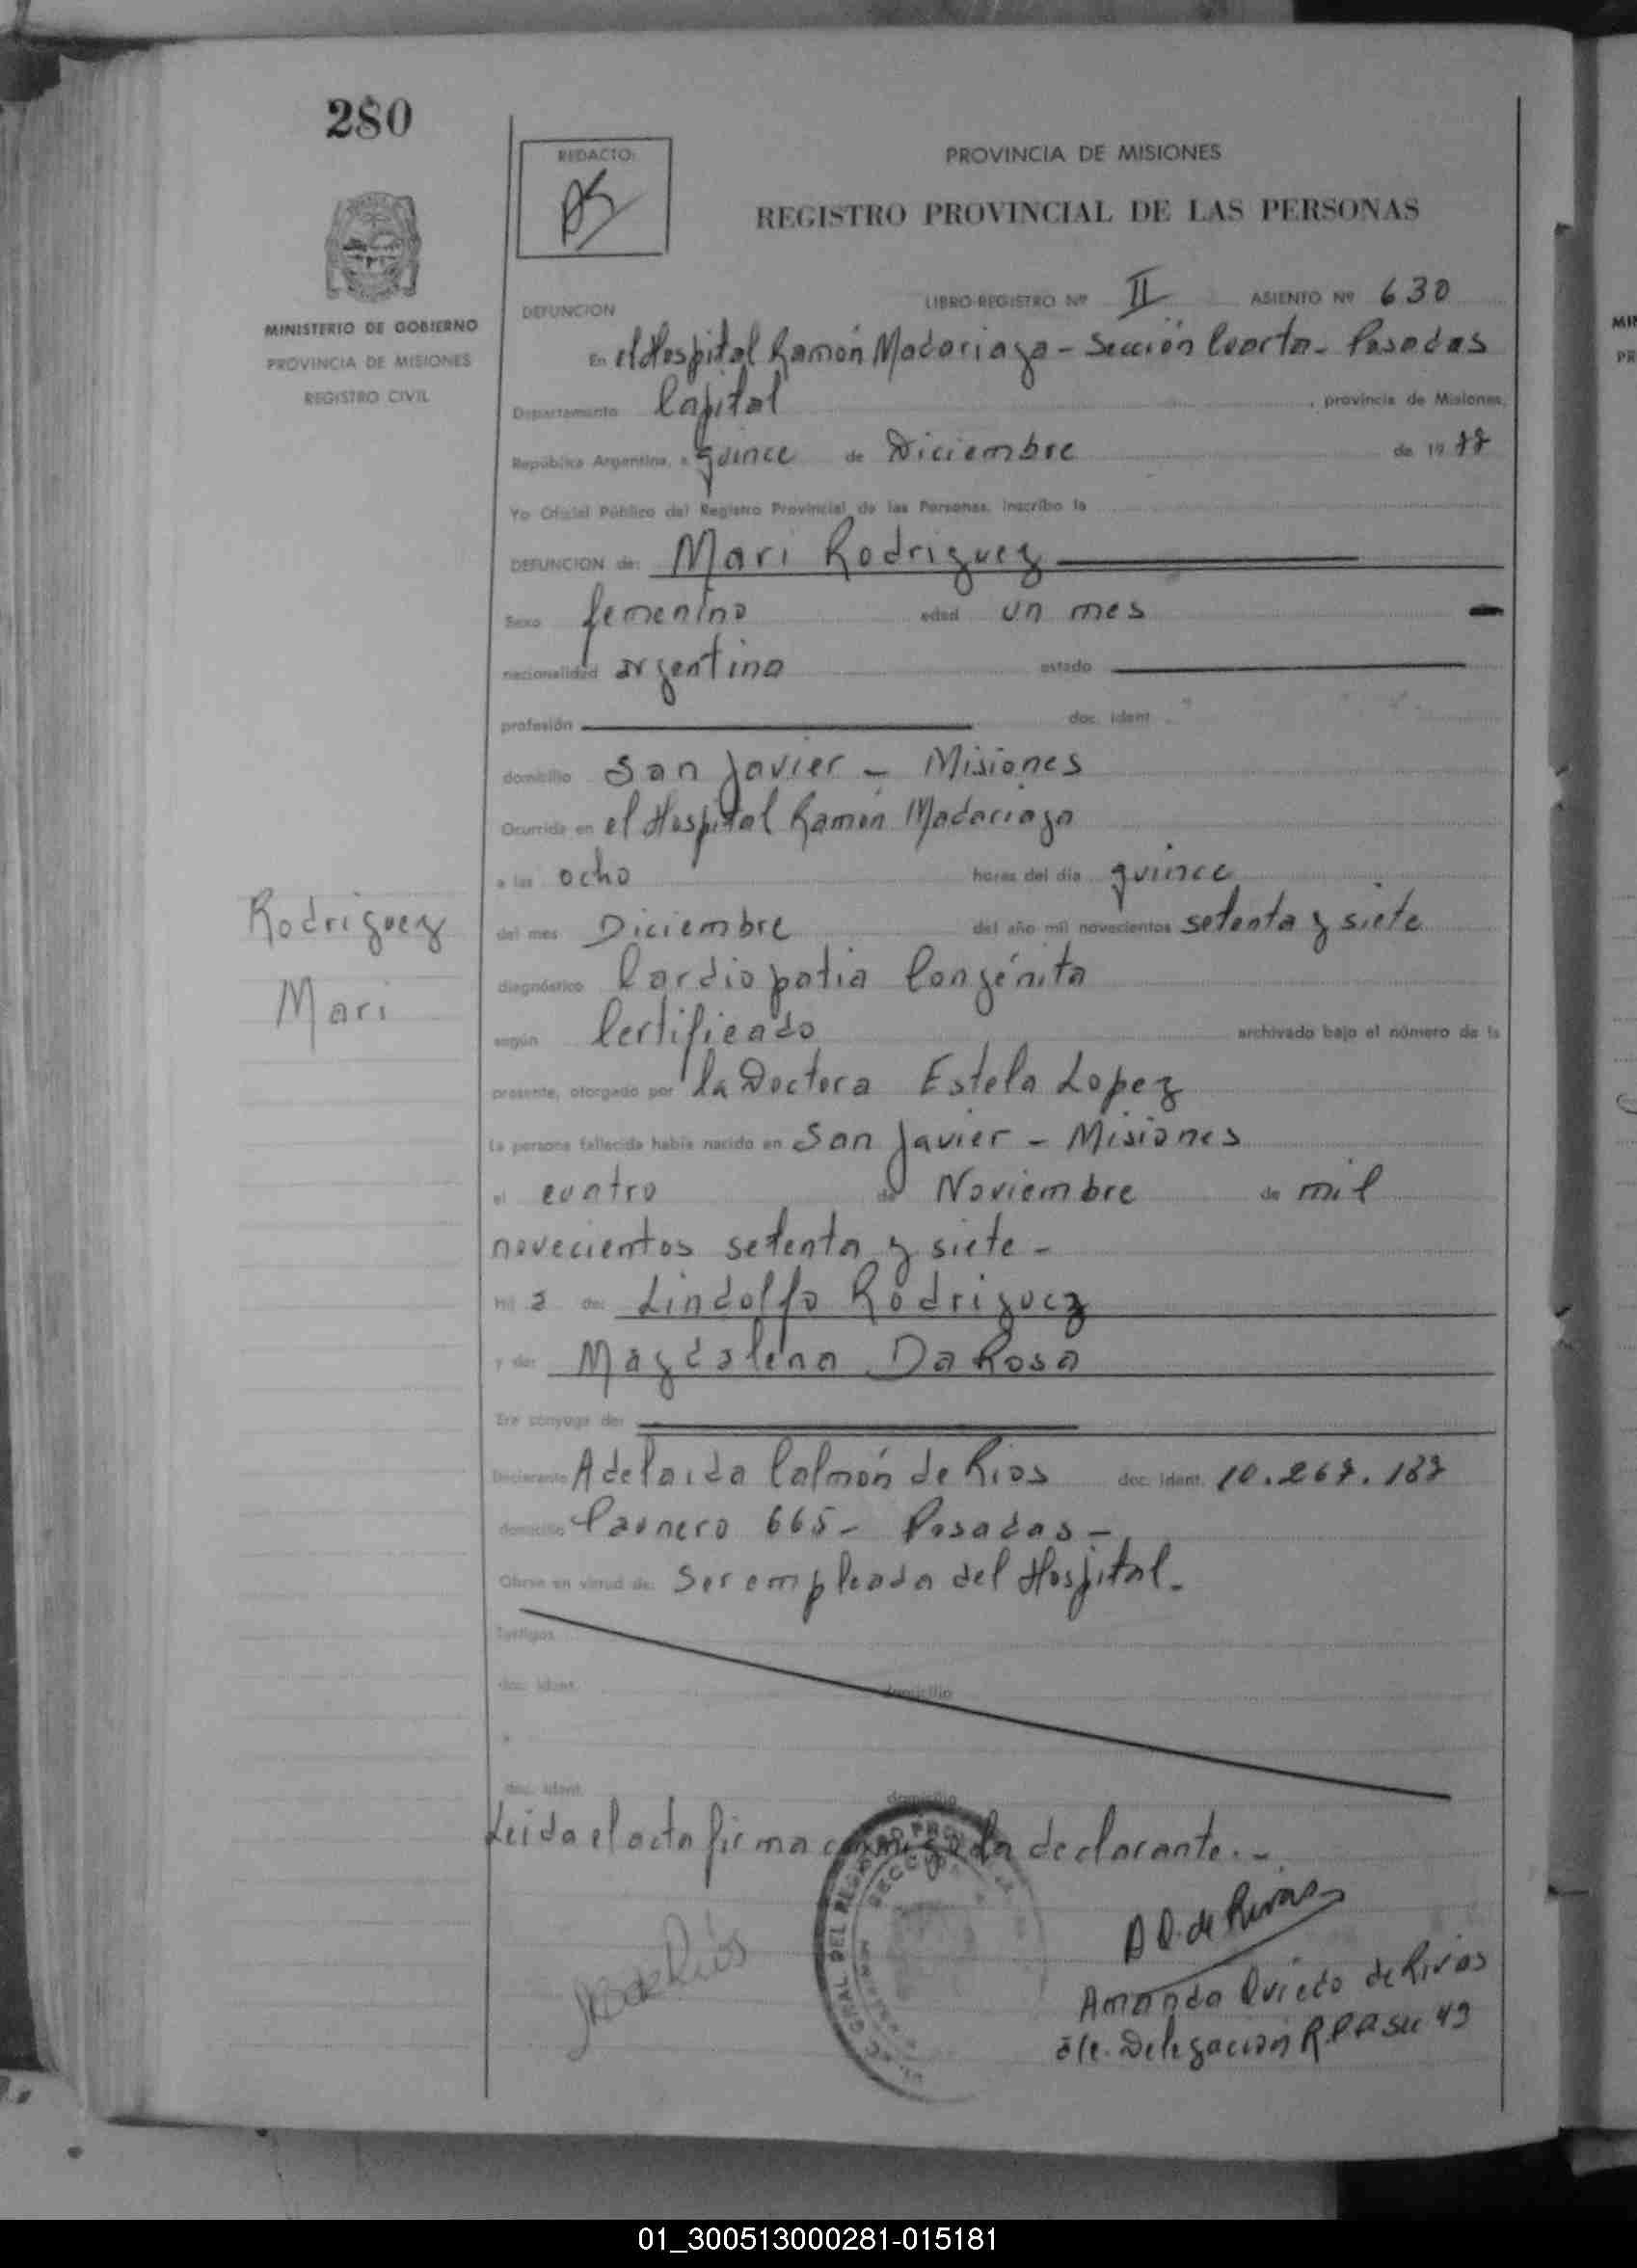 280
REDACTO:
PROVINCIA DE MISIONES
REGISTRO PROVINCIAL DE LAS PERSONAS
MINISTERIO DE GOBIERNO
PROVINCIA DE MISIONES
REGISTRO CIVIL
DEFUNCION LIBRO-REGISTRO Nº II ASIENTO Nº 630
En el Hospital Ramón Madariaga - Sección Cuarta - Posadas
Departamento Capital, provincia de Misiones,
República Argentina, a quince de Diciembre de 1977
Yo Oficial Público del Registro Provincial de las Personas, inscribo la
DEFUNCION de: Mari Rodriguez
Sexo femenino edad un mes
nacionalidad argentina estado
profesión doc. ident.
domicilio San Javier - Misiones
Ocurrida en el Hospital Ramón Madariaga
a las ocho horas del día quince
del mes Diciembre del año mil novecientos setenta y siete
Rodriguez
Mari
diagnóstico Cardiopatia Congénita
según Certificado archivado bajo el número de la
presente, otorgado por la Doctora Estela Lopez
La persona fallecida había nacido en San Javier - Misiones
el cuatro de Noviembre de mil
novecientos setenta y siete -
Hij a de: Lindolfo Rodriguez
y de: Magdalena Da Rosa
Era cónyuge de:
Declarante Adelaida Calmón de Rios doc. ident. 10.267.187
domicilio Paunero 665 - Posadas -
Obran en virtud de: Ser empleada del Hospital.
Testigos
doc. ident. domicilio
doc. ident. domicilio
Leida el acta firma conmigo la declarante. -
de Riós
A O. de Rivas
Amanda Oviedo de Rivas
Delegación
GRAL DEL REGISTRO
SECCION
MIN
PR
01_300513000281-015181